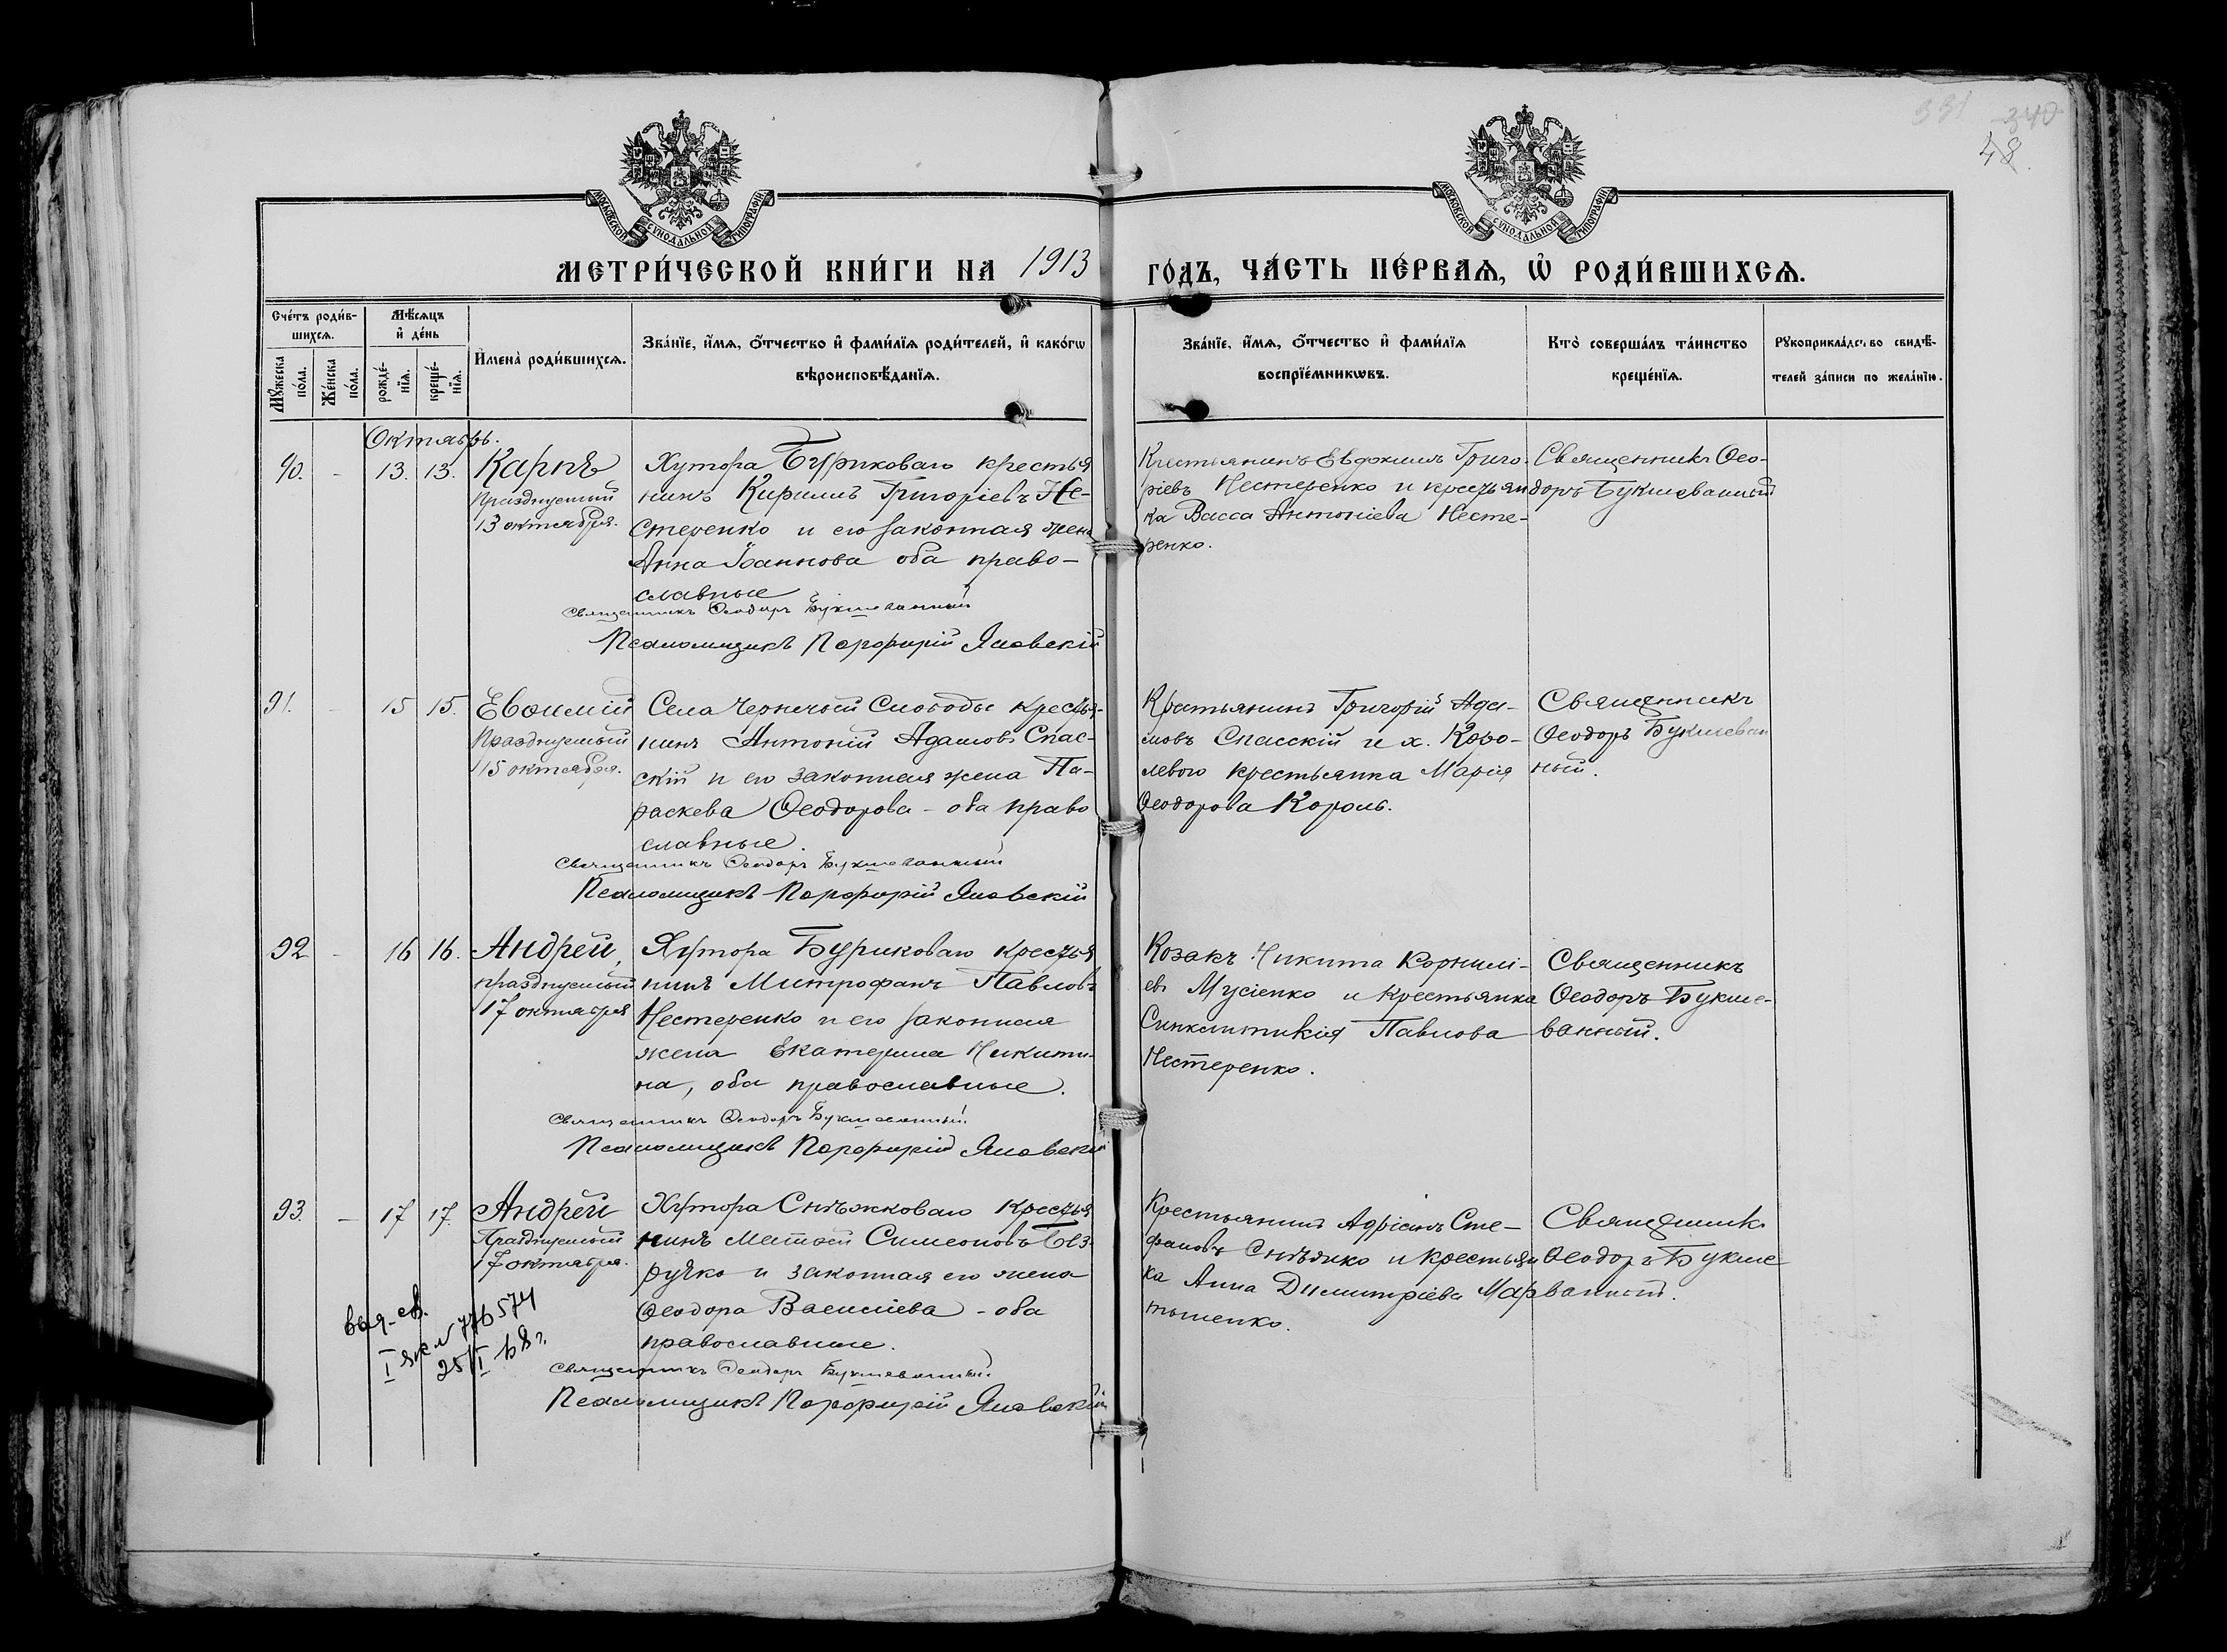 331 340
48
МОСКОВСКОЙ СѴНОДАЛЬНОЙ ТИПОГРАФІИ
МОСКОВСКОЙ СѴНОДАЛЬНОЙ ТИПОГРАФІИ
МЕТРИ́ЧЕСКОЙ КНИ́ГИ НА 1913 ГО́ДЪ, ЧА́СТЬ ПЕ́РВАѦ, Ѽ РОДИ́ВШИХСѦ.
Сче́тъ роди́в-
шихсѧ.
Мꙋ́жеска по́ла.
Же́нска по́ла.
Мѣ́сѧцъ
и҆ де́нь
рожде́-
нїѧ.
креще́-
нїѧ.
И҆мена̀ роди́вшихсѧ.
Зва́нїе, и҆́мѧ, ѻ҆́тчество и҆ фами́лїѧ роди́телей, и҆ како́гѡ
вѣроисповѣ́данїѧ.
Зва́нїе, и҆́мѧ, ѻ҆́тчество и҆ фами́лїѧ
воспрїе́мникѡвъ.
Кто̀ соверша́лъ та́инство
креще́нїѧ.
Рꙋкоприкла́дство свидѣ́-
телей за́писи по жела́нїю.
Октябрь.
90. - 13. 13. Карпъ
Празднуемый
13 октября.
Хутора Бурикова̄го крестья
нинъ Кириллъ Григоріевъ Не-
стеренко и его законная жена
Анна Іоаннова оба право-
славные
Священникъ Ѳеодоръ Букшеванный
Псаломщикъ Порфирій Яновскій
Крестьянинъ Евдокимъ Григо-
ріевъ Нестеренко и крестьян
ка Васса Антоніева Несте-
ренко.
Священникъ Ѳео-
доръ Букшеванный
91. - 15 15. Евѳимій
Празднуемый
15 октября.
Села Черничой Слободы крестья-
нинъ Антоній Адамовъ Спас-
скій и его законная жена Па-
раскева Ѳеодорова - оба право
славные.
Священникъ Ѳеодоръ Букшеванный
Псаломщикъ Порфирій Яновскій
Крестьянинъ Григорій Ада-
мовъ Спасскій и х. Коро-
левого крестьянка Марія
Ѳеодорова Король.
Священникъ
Ѳеодоръ Букшеван
ный.
92 - 16 16. Андрей,
празднуемый
17 октября
Хутора Буриковаго крестья
нинъ Митрофанъ Павловъ
Нестеренко и его законная
жена Екатерина Никити-
на, оба православные.
Священникъ Ѳеодоръ Букшеванный
Псаломщикъ Порфирій Яновскій
Козакъ Никита Корнилі-
евъ Мусіенко и крестьянка
Синклитикія Павлова
Нестеренко.
Священникъ
Ѳеодоръ Букше-
ванный.
93. - 17 17. Андрей
Празднуемый
17 октября.
Хутора Снѣжковаго крестья
нинъ Матѳей Симеоновъ Без-
ручко и законная его жена
Ѳеодора Василіева - оба
православные.
Священникъ Ѳеодоръ Букшеванный
Псаломщикъ Порфирій Яновскій
Крестьянинъ Адріанъ Сте-
фановъ Снѣжко и крестьян
ка Анна Димитріева Мар
тыненко.
Священникъ
Ѳеодоръ Букше
ванный.
776574